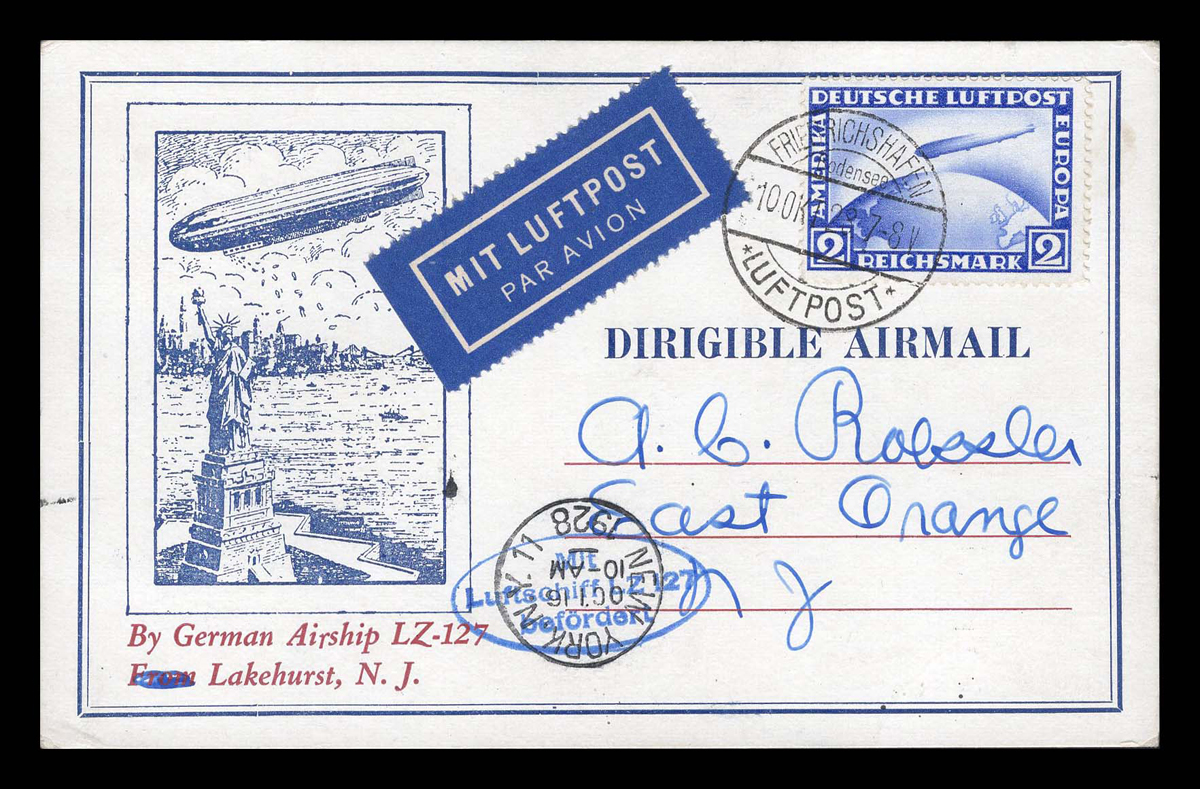 MIT LUFTPOST
PAR AVION
DEUTSCHE LUFTPOST
AMERIKA
EUROPA
2 REICHSMARK 2
FRIEDRICHSHAFEN
Bodensee
*LUFTPOST*
DIRIGIBLE AIRMAIL
A. C. Roessler
East Orange
N J
NEW YORK N.Y. 11
OCT 16
10-AM
1928
Mit
Luftschiff LZ 127
befördert
By German Airship LZ-127
From Lakehurst, N. J.